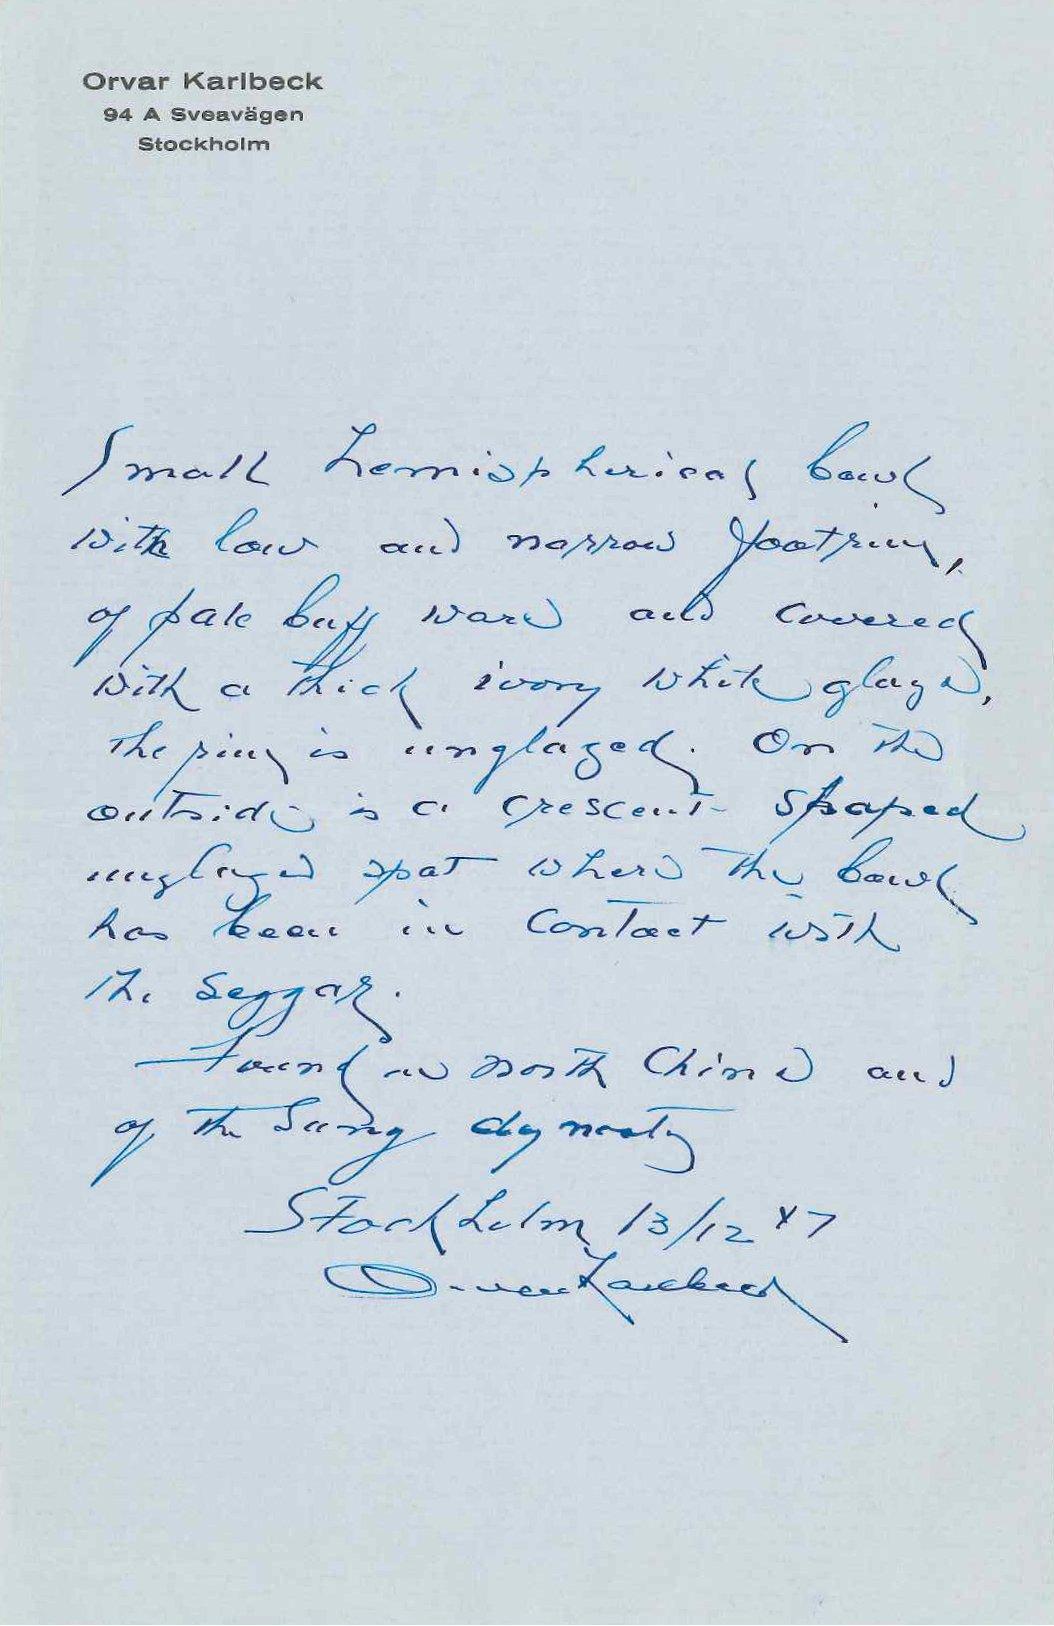 Orvar Karlbeck
94 A Sveavägen
Stockholm
Small hemispherical bowl
with low and narrow footring,
of pale buff ware and covered
with a thick ivory white glaze,
the ring is unglazed. On the
outside is a crescent shaped
unglazed spot where the bowl
has been in contact with
the seggar.
Found in north China and
of the Sung dynasty
Stockholm 13/12 47
Orvar Karlbeck